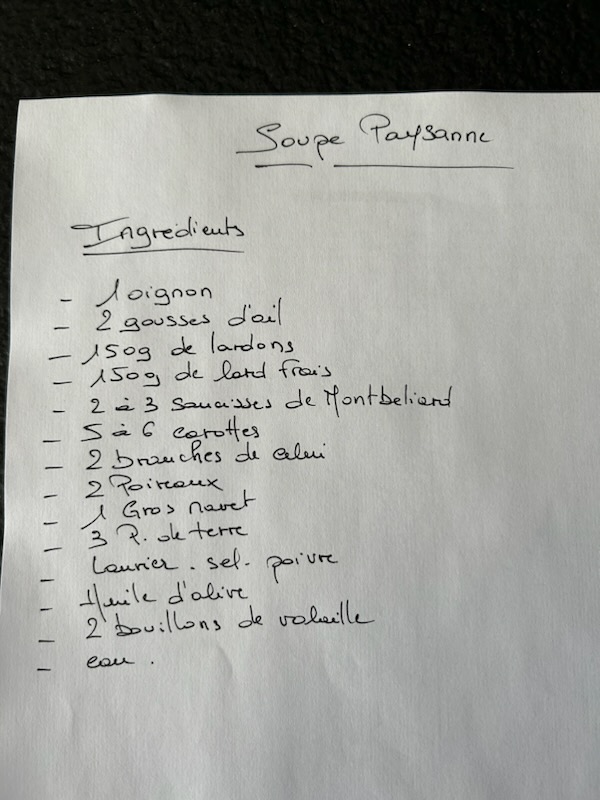 Soupe Paysanne
Ingrédients
- 1 oignon
- 2 gousses d'ail
- 150g de lardons
- 150g de lard frais
- 2 à 3 saucisses de Montbeliard
- 5 à 6 carottes
- 2 branches de céleri
- 2 Poireaux
- 1 Gros navet
- 3 P. de terre
- Laurier . sel . poivre
- Huile d'olive
- 2 bouillons de volaille
- eau .